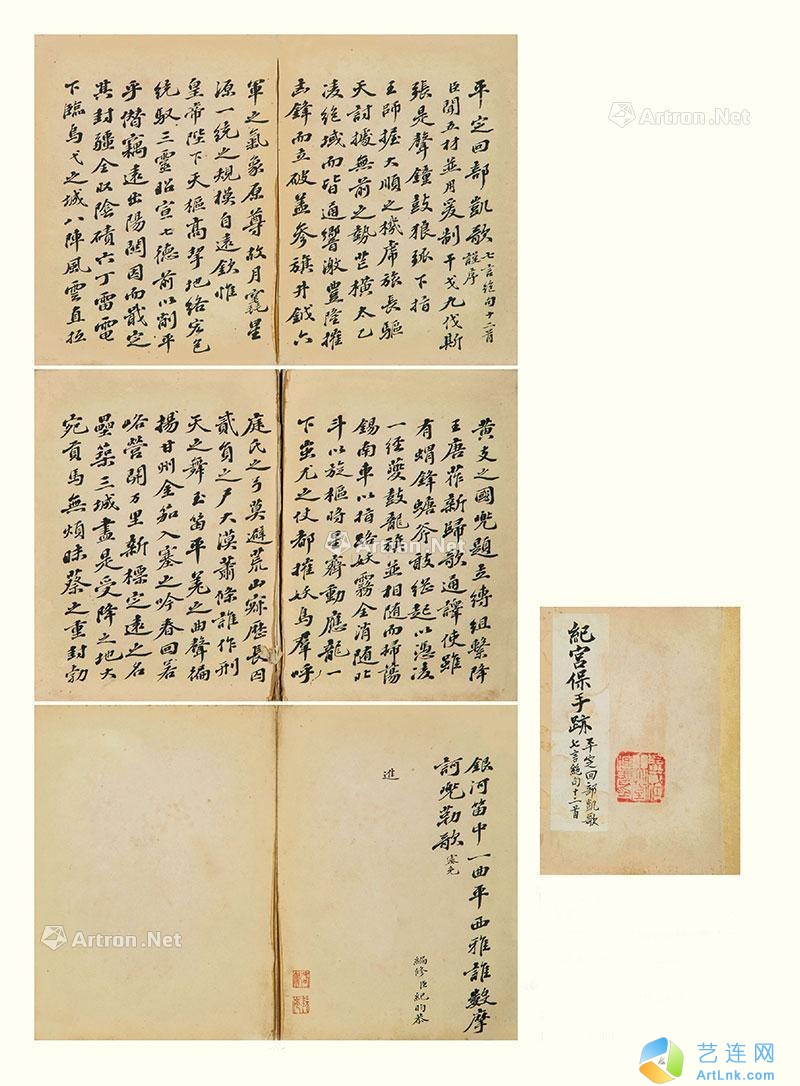 平定回部凱歌七言絕句十二首
謹序
臣聞五材並用爰制干戈九伐斯
張是聲鐘鼓狼弧下指
王師握大順之機虎旅長驅
天討據無前之勢芒橫太乙
凌絕域而皆通響激豐隆摧
鋒而立破蓋參旗井鉞六
軍之氣象原尊故月竁星
源一統之規模自遠欽惟
皇帝陛下天樞高挈地絡宏包
統馭三靈昭宣七德前以削平
乎僭竊遠出陽關因而戡定
其封疆全収陰磧六丁雷電
下臨烏弋之城八陣風雲直拉
黃支之國兜題立縛組繫降
王唐莋新歸歌通譯使雖
有蜩鋒螗斧敢從起以憑凌
一經夔鼓龍旂並相随而掃蕩
錫南車以指路妖霧全消随北
斗以旋樞時星齊動應龍一
下蚩尤之仗都摧妖鳥群呼
庭氏之弓莫避荒山寂歷長囚
貳負之尸大漠蕭條誰作刑
天之舞玉笛平羌之曲聲徧
揚甘州金笳入塞之吟春回若
峪營開万里新標定遠之名
壘築三城盡是受降之地大
宛貢馬無煩昧蔡之重封勃
銀河笛中一曲平西雅誰數摩
訶兜勒歌
進
編修臣紀昀恭
紀宮保手跡
平定回部凱歌
七言絕句十二首
Artron.Net
Artron.Net
Artron.Net
Artron.Net
艺连网
ArtLnk.com